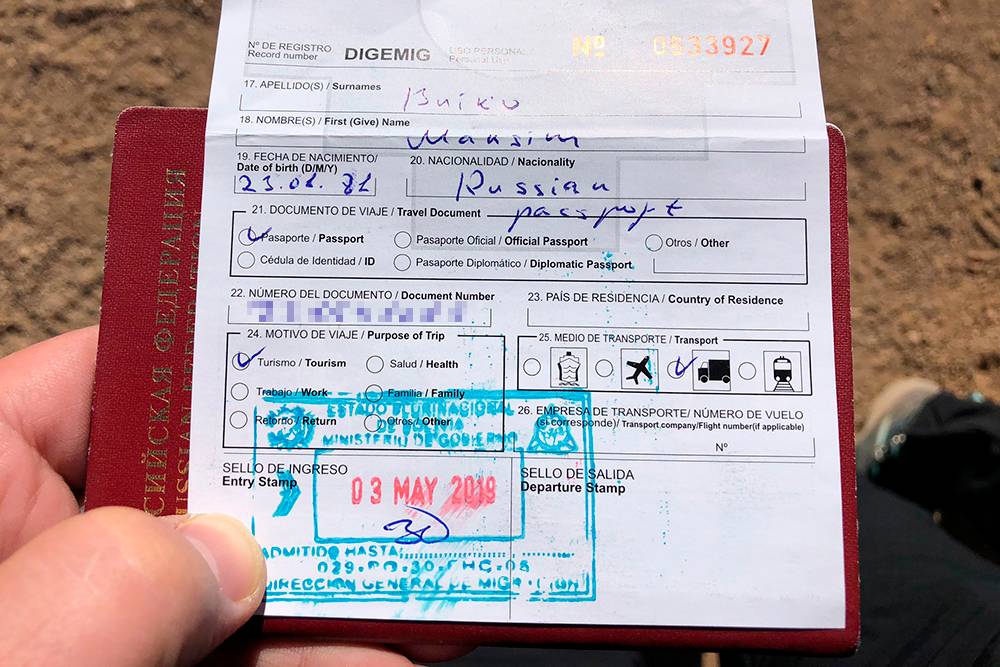 Nº DE REGISTRO
Record number
DIGEMIG
USO PERSONAL
Personal Use
Nº 0533927
17. APELLIDO(S) / Surnames
18. NOMBRE(S) / First (Give) Name
Maksim
19. FECHA DE NACIMIENTO/
Date of birth (D/M/Y)
20. NACIONALIDAD / Nacionality
Russian
21. DOCUMENTO DE VIAJE / Travel Document
passport
Pasaporte / Passport
Pasaporte Oficial / Official Passport
Otros / Other
Cédula de Identidad / ID
Pasaporte Diplomático / Diplomatic Passport
22. NÚMERO DEL DOCUMENTO / Document Number
23. PAÍS DE RESIDENCIA / Country of Residence
24. MOTIVO DE VIAJE / Purpose of Trip
25. MEDIO DE TRANSPORTE / Transport
Turismo / Tourism
Salud / Health
Trabajo / Work
Familia / Family
Retorno / Return
Otros / Other
26. EMPRESA DE TRANSPORTE/ NÚMERO DE VUELO
(si corresponde)/ Transport.company/Flight number(if applicable)
Nº
ESTADO PLURINACIONAL
DE BOLIVIA
MINISTERIO DE GOBIERNO
SELLO DE INGRESO
Entry Stamp
SELLO DE SALIDA
Departure Stamp
03 MAY 2019
30
ADMITIDO HASTA:
DIRECCION GENERAL DE MIGRACION
РОССИЙСКАЯ ФЕДЕРАЦИЯ
RUSSIAN FEDERATION